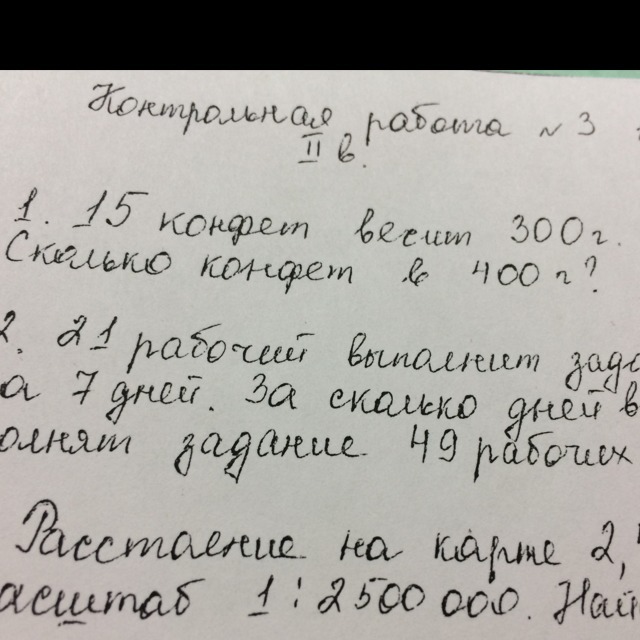 Контрольная работа № 3
II в.
1. 15 конфет весит 300 г.
Сколько конфет в 400 г?
2. 21 рабочий выполнит зада
а 7 дней. За сколько дней в
олнят задание 49 рабочих
Расстаение на карте 2,
асштаб 1 : 2500 000. Най